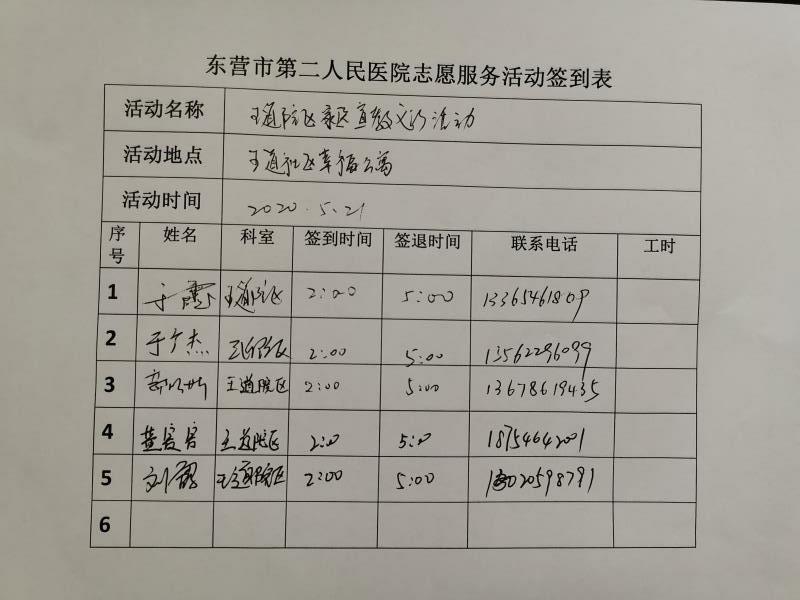 东营市第二人民医院志愿服务活动签到表
活动名称 王道院区家区宣教义诊活动
活动地点 王道社区幸福公寓
活动时间 2020.5.21
序号 姓名 科室 签到时间 签退时间 联系电话 工时
1 于霞 王道院区 2:00 5:00
2 于 杰 王道院区 2:00 5:00 13562296099
3 王道院区 2:00 5:00 13678619435
4 王道院区 2:0 5:0
5 刘 王道院区 2:00 5:00
6